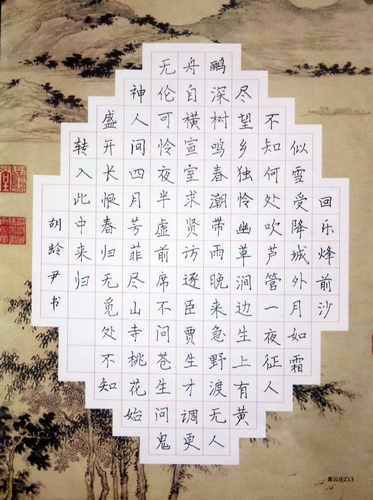 回乐烽前沙
似雪受降城外月如霜
不知何处吹芦管一夜征人
尽望乡独怜幽草涧边生上有黄
鹂深树鸣春潮带雨晚来急野渡无人
舟自横宣室求贤访逐臣贾生才调更
无伦可怜夜半虚前席不问苍生问鬼
神人间四月芳菲尽山寺桃花始
盛开长恨春归无觅处不知
转入此中来归
胡龄尹书